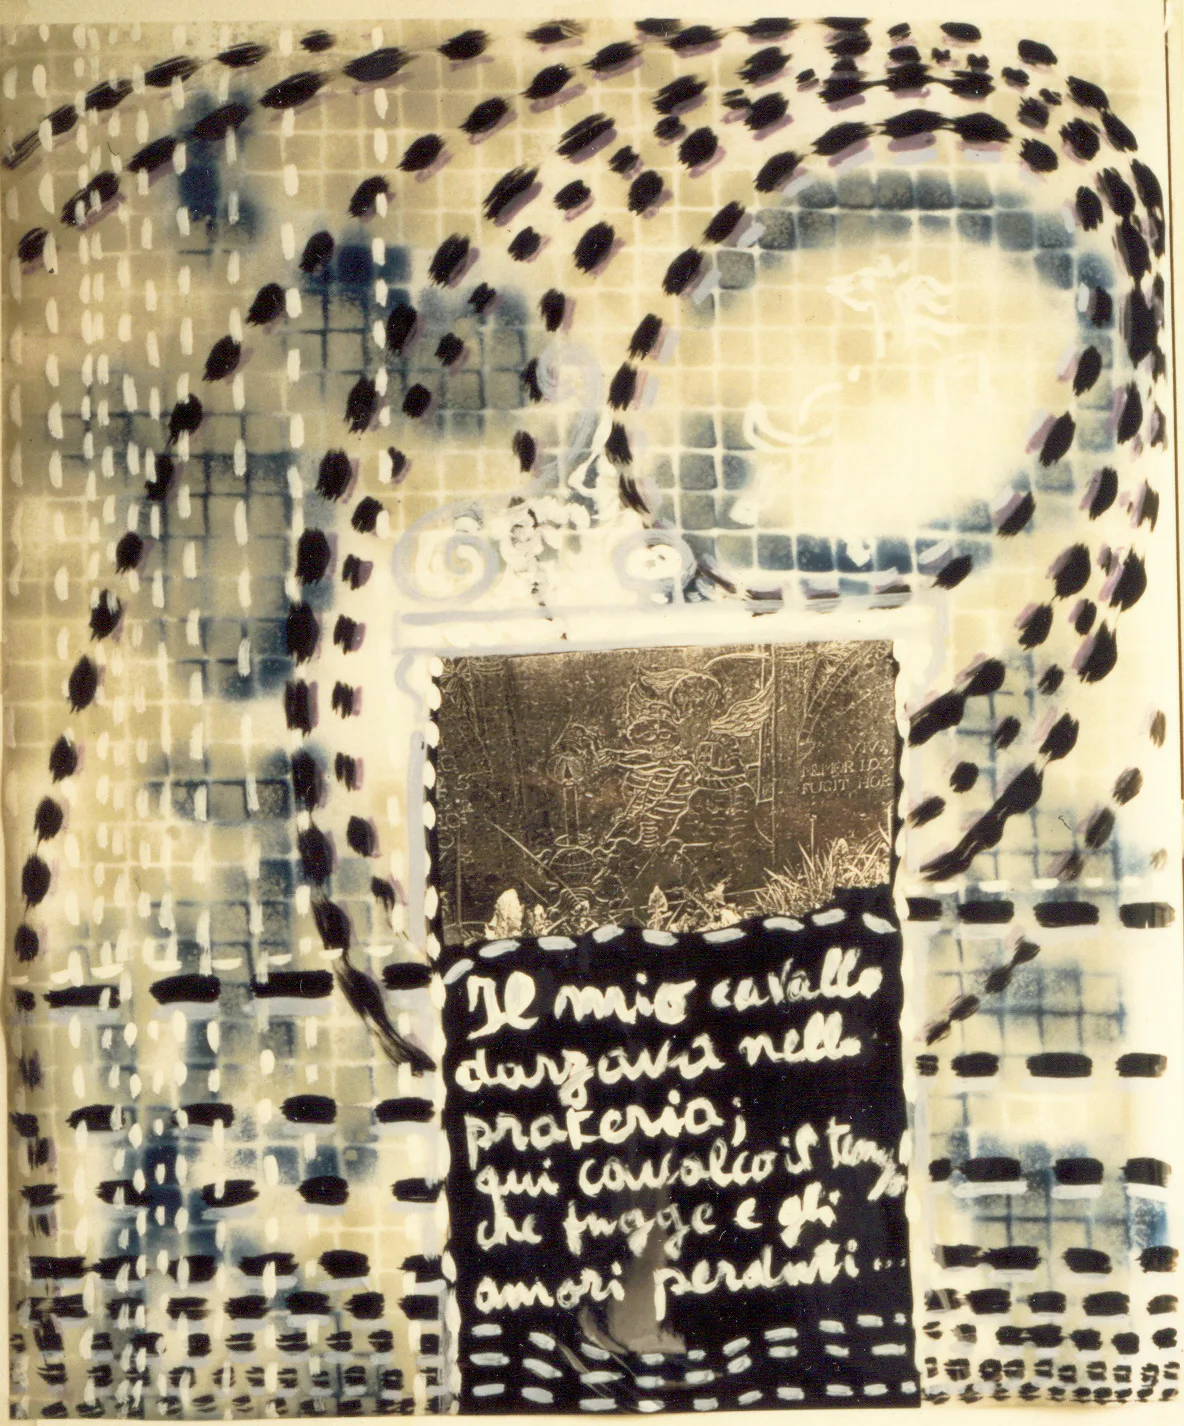 VIVA
FUGIT HOR
Il mio cavallo
danzava nella
prateria;
qui cavalco il tempo
che fugge e gli
amori perduti...